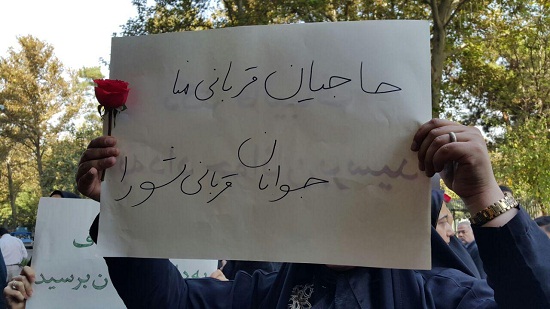 حاجیان قربانی منا
جوانان قربانی شورا
برسید